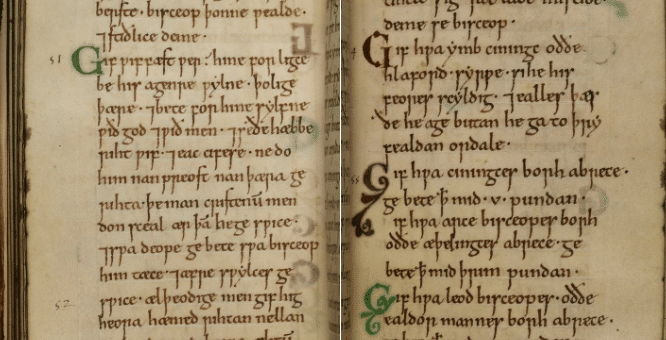 berste · bisceop þonne wealde ·
⁊ stiðlice deme ·
51 Gif wiffæst wer : hine forlicge
be his agenre wylne · þolige
þære · ⁊ bete for hine sylfne
wið god ⁊ wið men · ⁊ se ðe hæbbe
riht wif · ⁊ eac cifese · ne do
him nan preost nan þæra ge
rihta · þe man cristenū men
don sceal ær þā he geswice ·
⁊ swa deope gebete swa bisceop
him tæce · ⁊ æfre swylces ge
swice · ælþeodige men gif hig
52 heora hæmed rihtan nellan
deme se bisceop ·
Gif hwa ymb cininge oððe
hlaford · syrwe · si he his
feores scyldig · ⁊ ealles þæs
ðe he age buttan he ga to þry
fealdan ordale ·
Gif hwa cininges borh abrece ·
gebete ꝥ mid · v · pundan ·
Gif hwa arce bisceopes borh
oððe æþelinges abrece · ge
bete ꝥ mid þrim pundan ·
Gif hwa leod bisceopes · oððe
ealdor mannes borh abrece ·